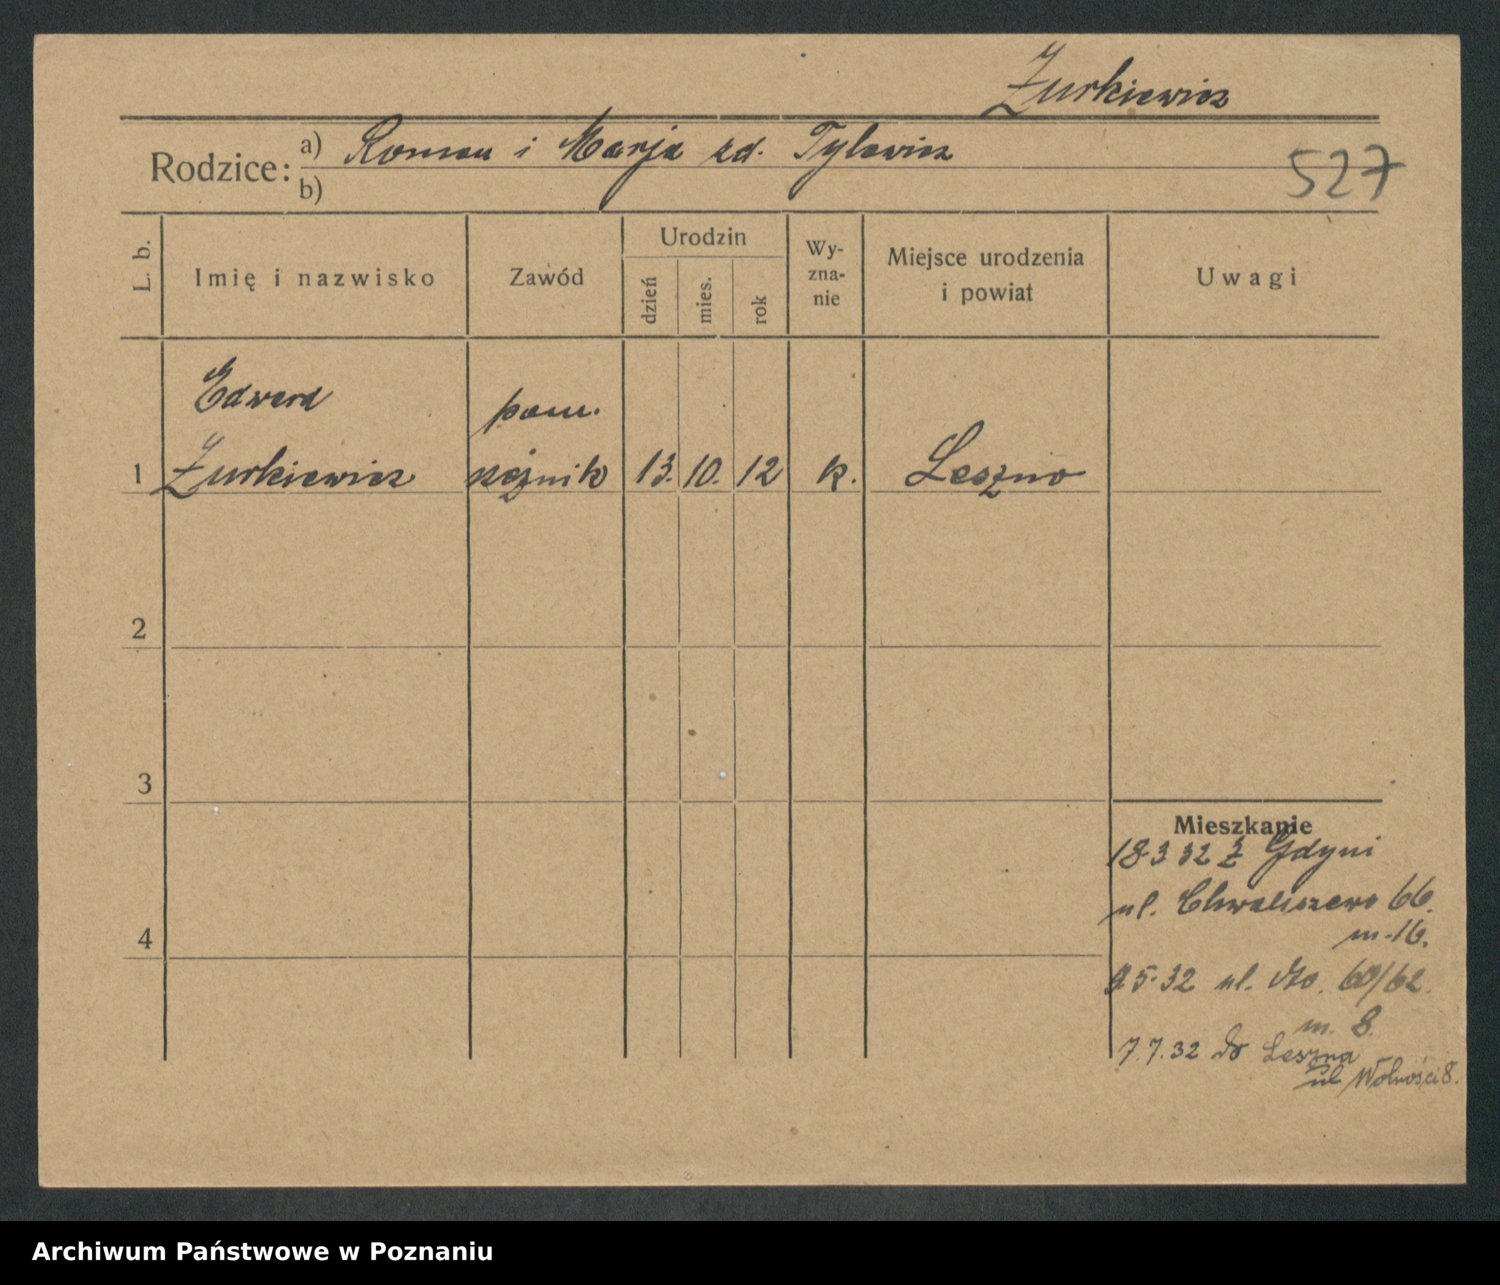 Żurkiewicz
Rodzice: a) Roman i Marja zd. Tylewicz
b)
527
L. b.
Imię i nazwisko
Zawód
Urodzin
dzień
mies.
rok
Wy-
zna-
nie
Miejsce urodzenia
i powiat
Uwagi
Edward
pom.
1 Żurkiewicz rzeźnik 13. 10. 12 k. Leszno
2
3
4
Mieszkanie
18 3 32 z Gdyni
ul. Chwaliszewo 66.
m. 16.
9 5. 32 ul. dto. 60/62.
m. 8.
7.7.32 do Leszna
ul. Wolności 8.
Archiwum Państwowe w Poznaniu